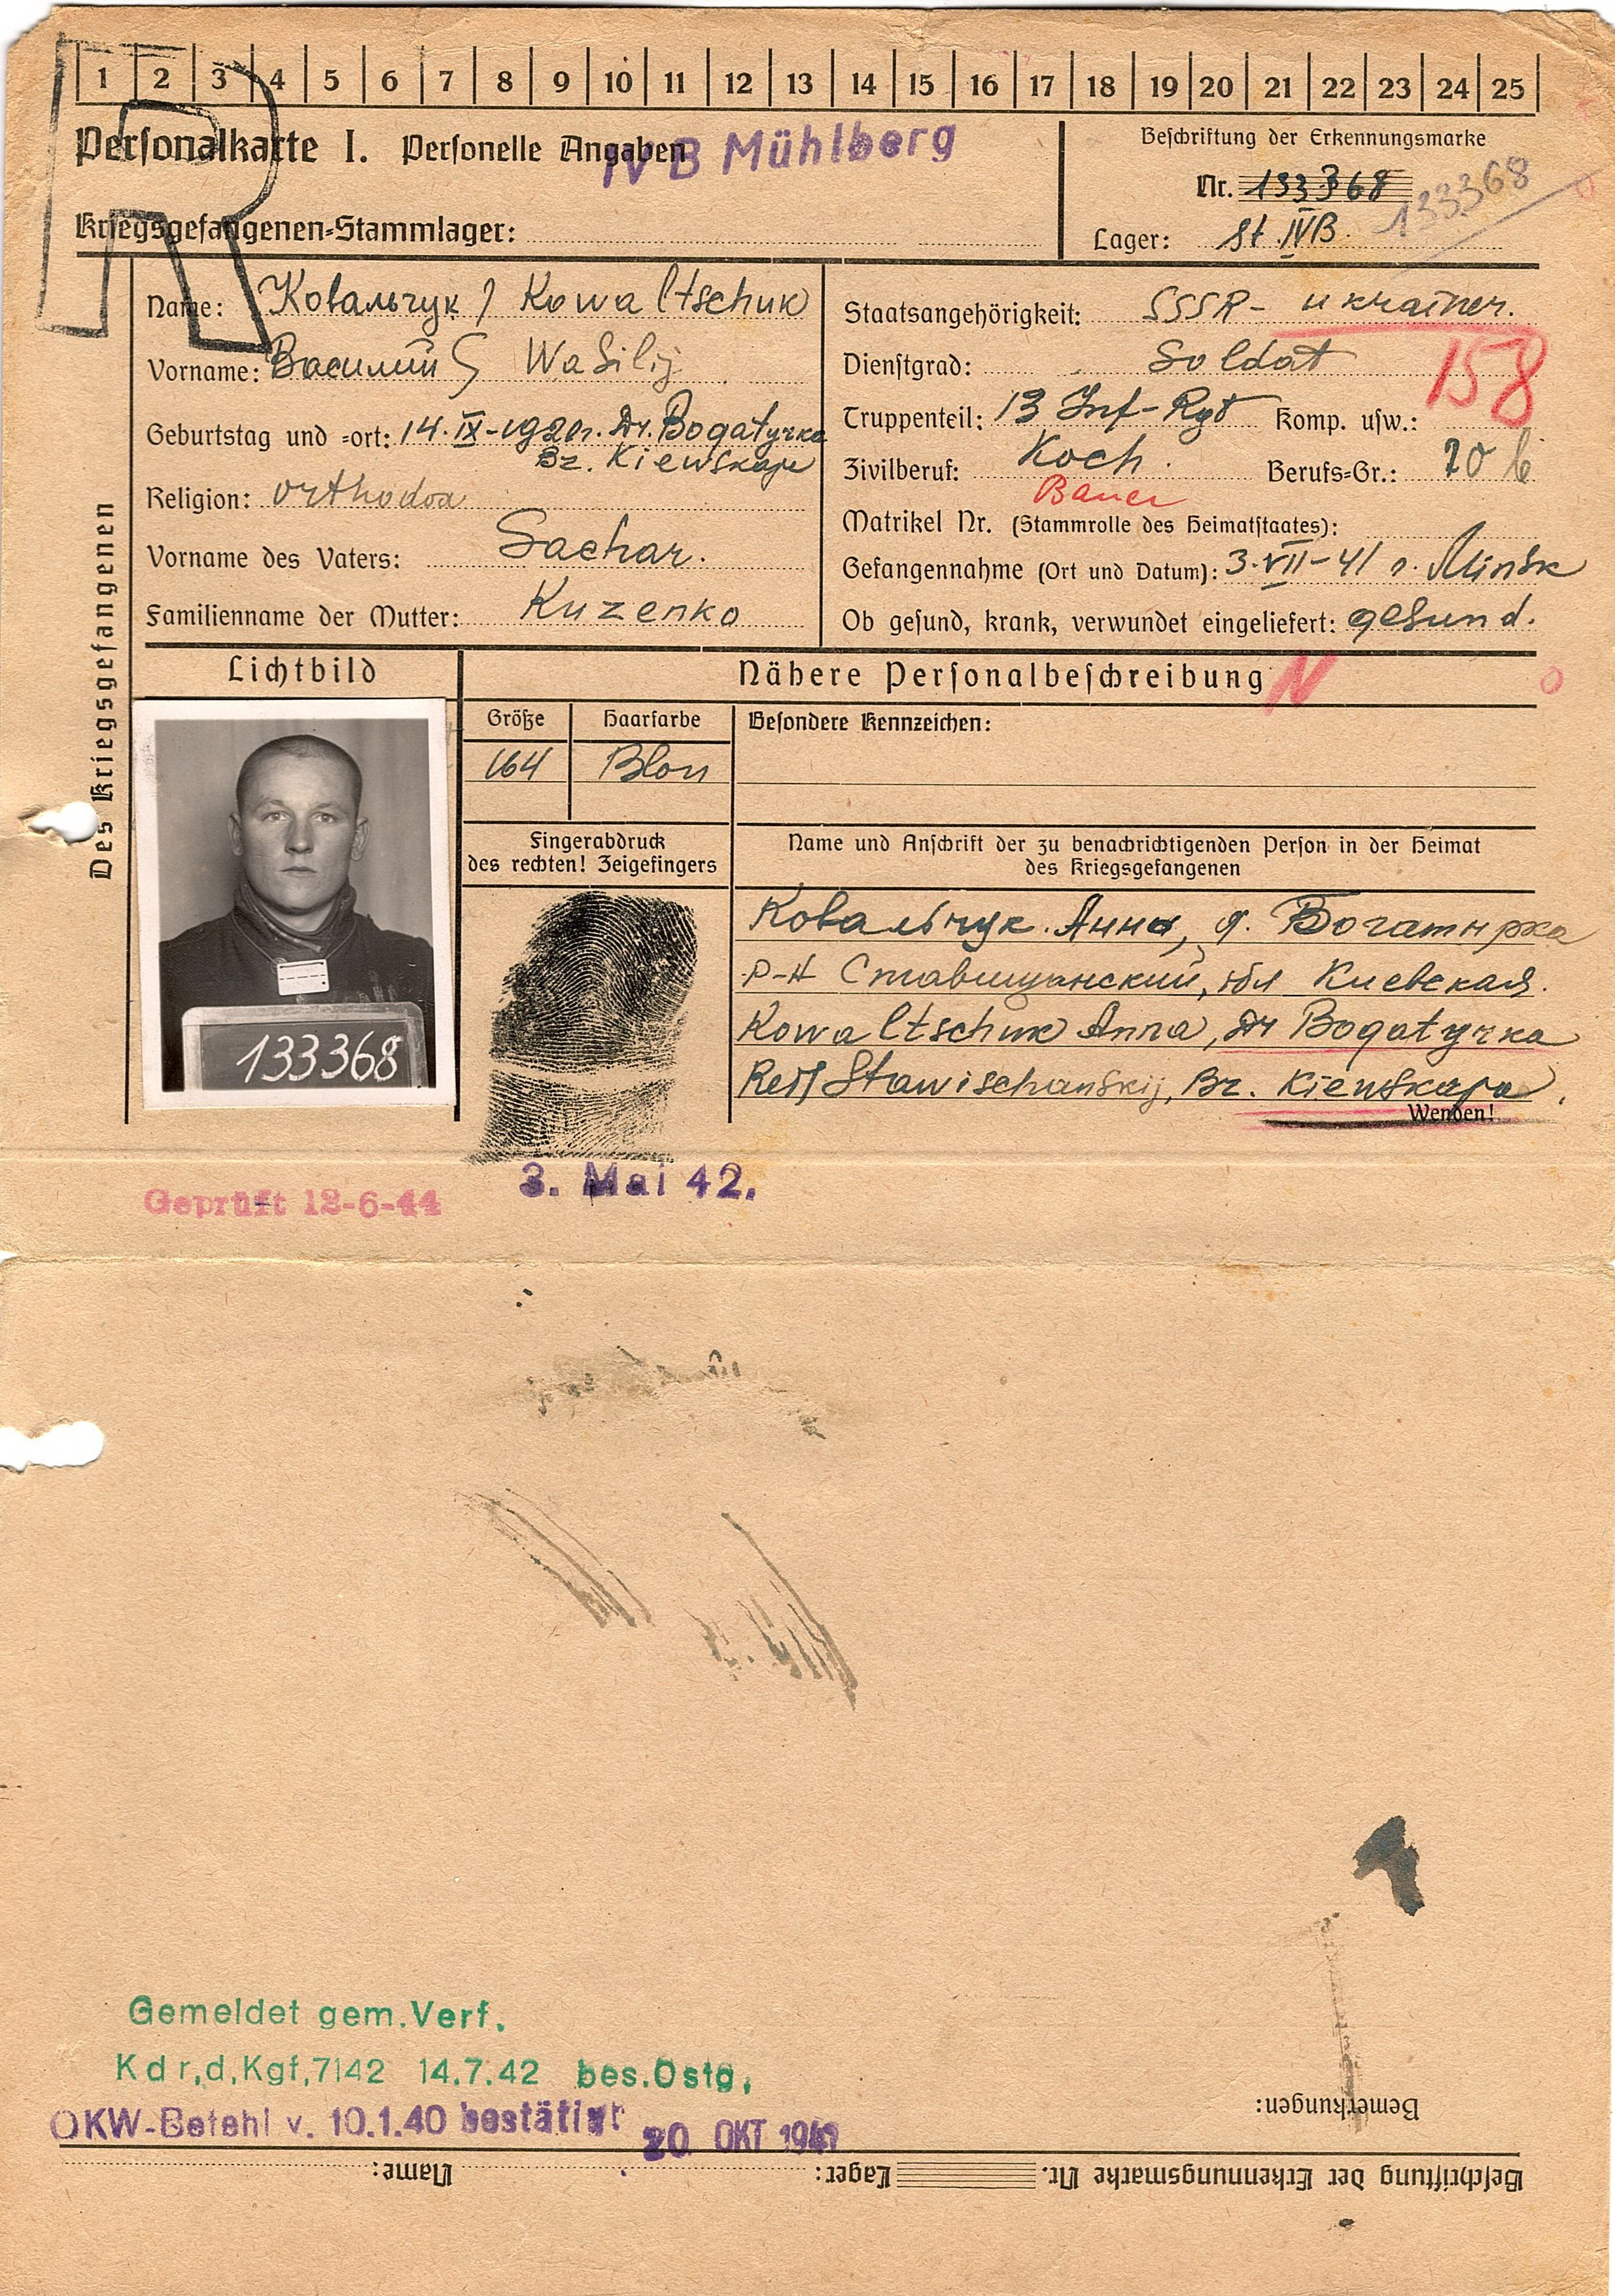 1 2 3 4 5 6 7 8 9 10 11 12 13 14 15 16 17 18 19 20 21 22 23 24 25
R
Personalkarte I. Personelle Angaben
IV B Mühlberg
Kriegsgefangenen-Stammlager:
Beschriftung der Erkennungsmarke
Nr. 133368
133368
Lager: St. IVB.
Des Kriegsgefangenen
Name: Ковальчук / Kowaltschuk
Vorname: Василий Wasilij
Geburtstag und =ort: 14.IX-1920r. Dr. Bogatyrka
Bz. Kiewskaje
Religion: orthodox
Vorname des Vaters: Sachar.
Familienname der Mutter: Kuzenko
Staatsangehörigkeit: SSSR- ukrainer.
Dienstgrad: Soldat
158
Truppenteil: 13 Inf-Rgt Komp. usw.:
Zivilberuf: Koch. Berufs-Gr.: 20 b
Bauer
Matrikel Nr. (Stammrolle des Heimatstaates):
Gefangennahme (Ort und Datum): 3.VII-41 r. Minsk
Ob gesund, krank, verwundet eingeliefert: gesund.
Lichtbild
Nähere Personalbeschreibung
N
Größe Haarfarbe Besondere Kennzeichen:
164 Blon
Fingerabdruck
des rechten! Zeigefingers
Name und Anschrift der zu benachrichtigenden Person in der Heimat
des Kriegsgefangenen
Ковальчук Анна, д. Богатырка
р-н Ставищанский, обл Киевская.
Kowaltschuk Anna, Dr Bogatyrka
Stawischanskij, Bz. Kiewskaja.
Wenden!
133368
Geprüft 12-6-44
3. Mai 42.
Gemeldet gem. Verf.
Kdr,d,Kgf,7142 14.7.42 bes.Ostg,
OKW-Befehl v. 10.1.40 bestätigt
20 OKT 1941
Bemerkungen:
Beschriftung der Erkennungsmarke Nr. Lager: Name: